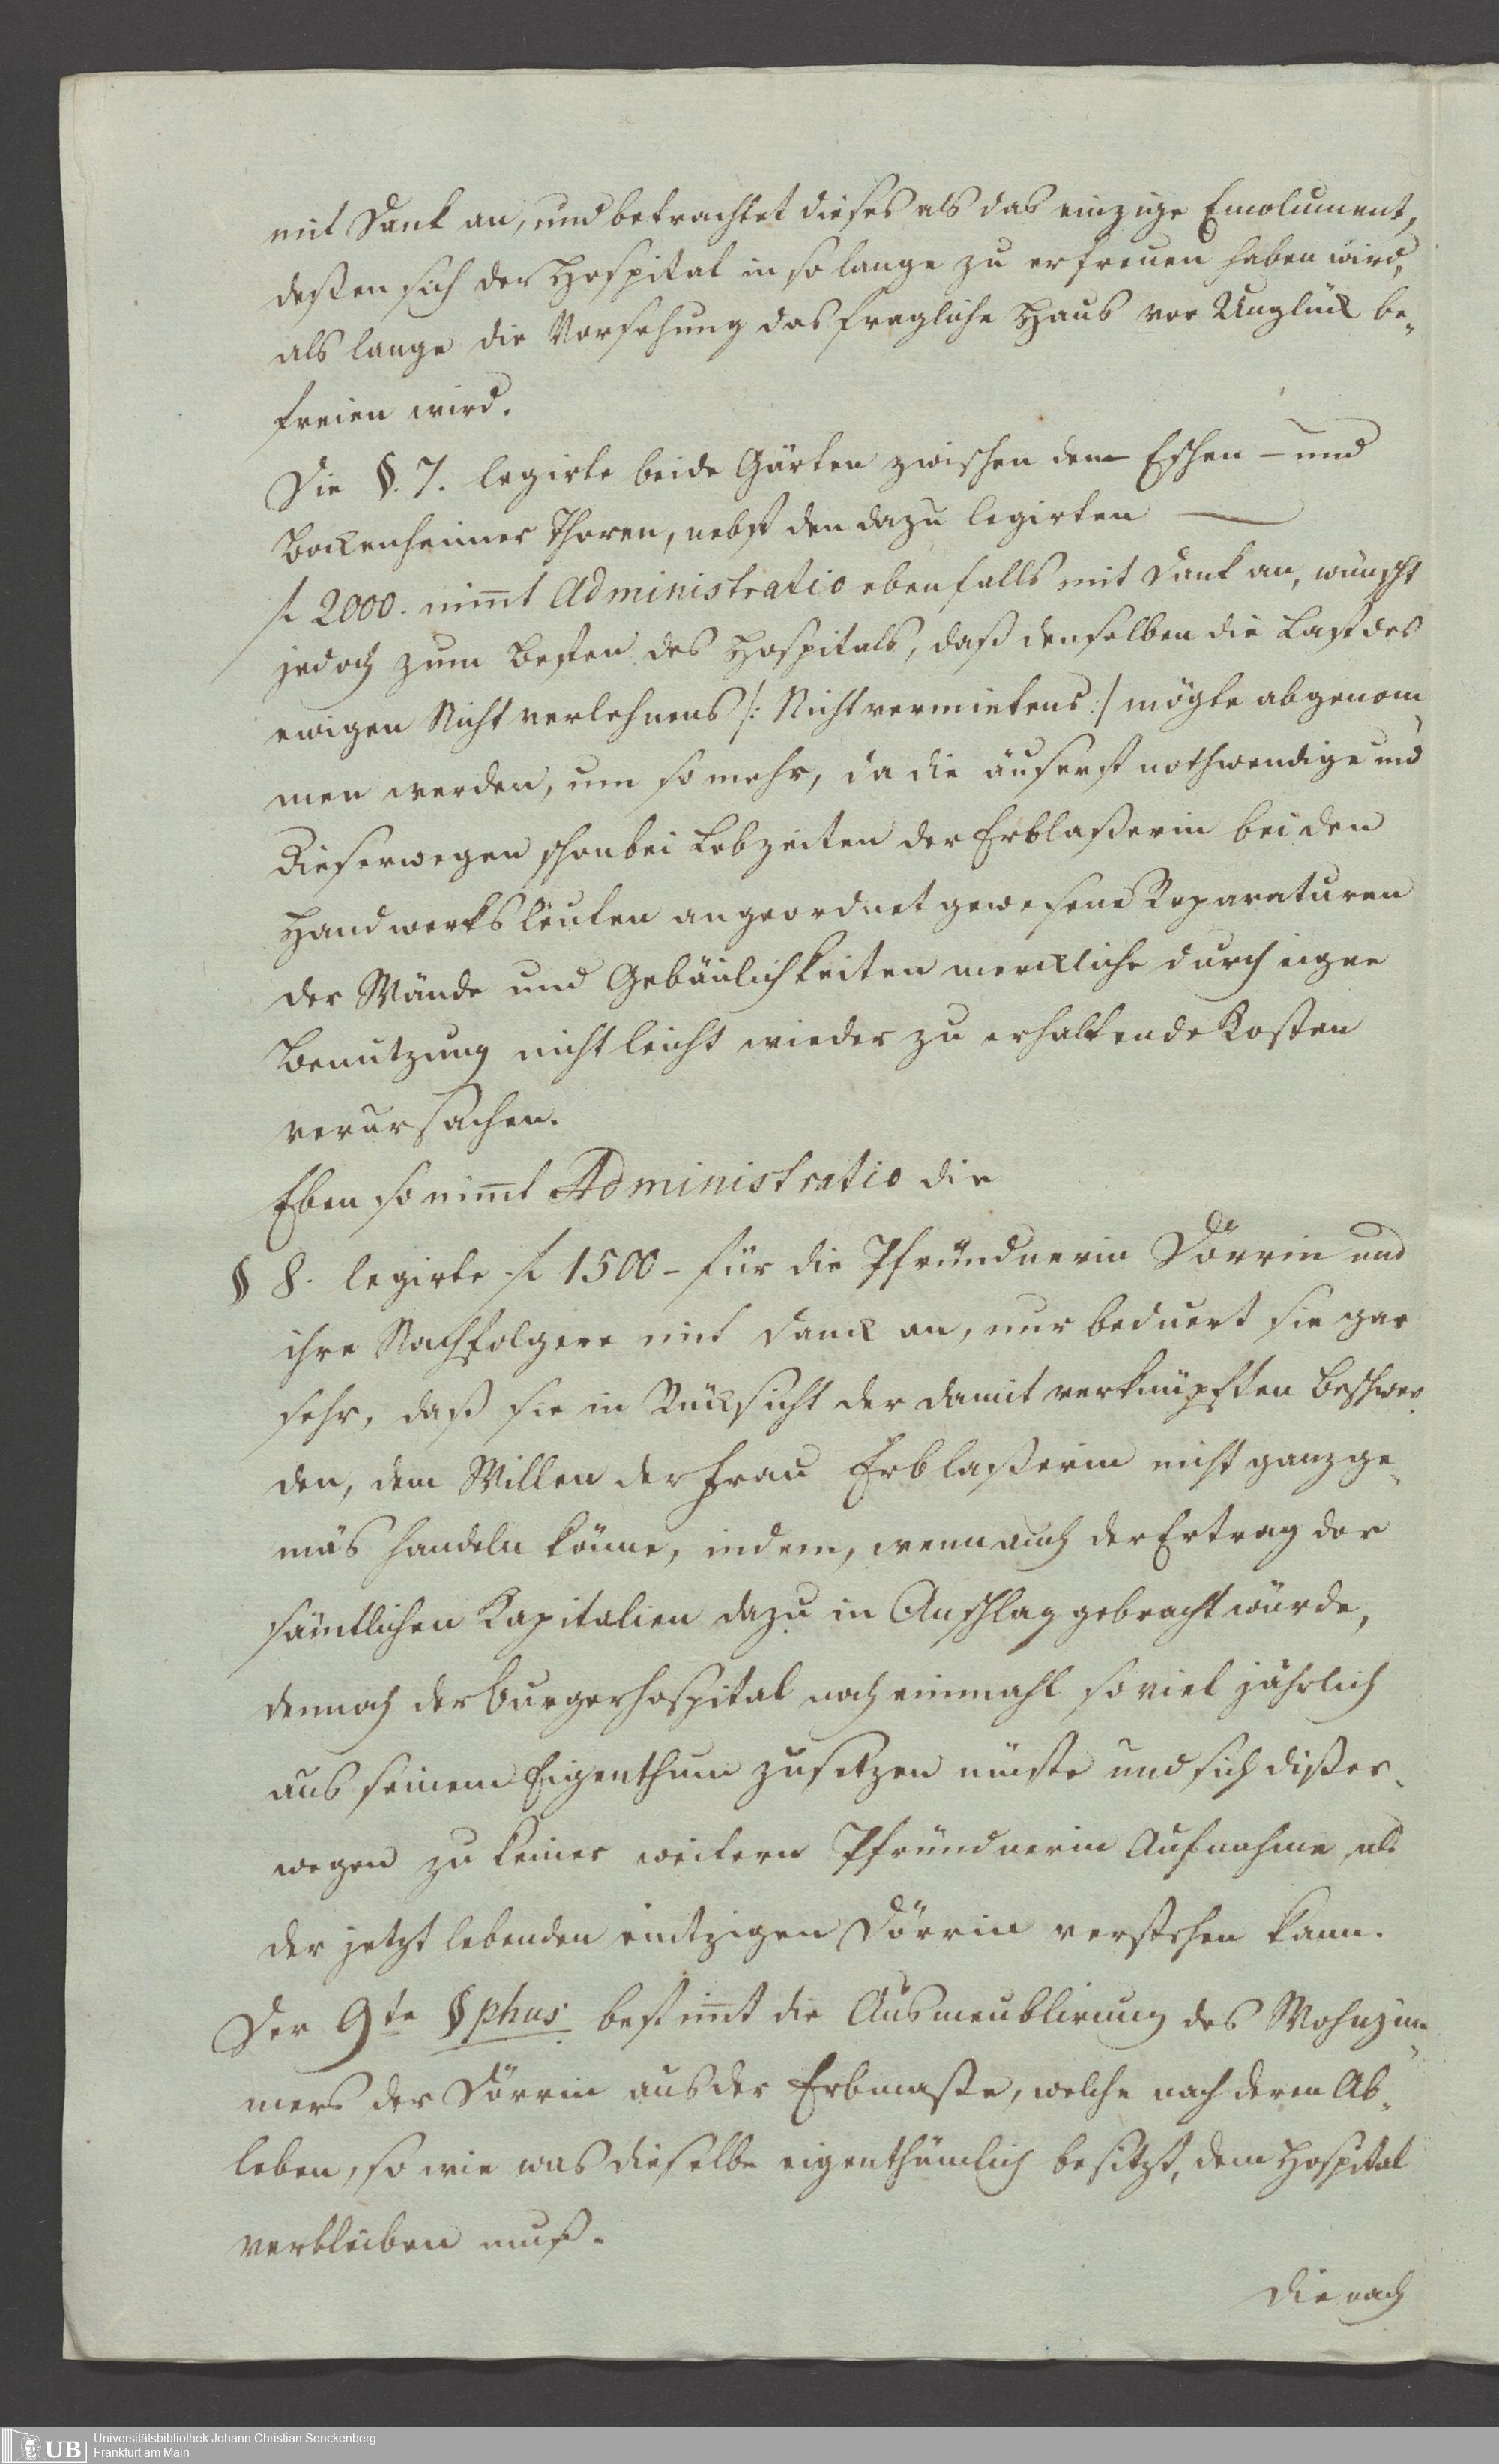 mit Dank an, und betrachtet dieses als das einzige Emolument,
deßen sich der Hospital in so lange zu erfreuen haben wird,
als lange die Vorsehung das fragliche Haus vor Unglük be„
freien wird.
Die §. 7. legirte beide Gärten zwischen dem Eschen – und
Bockenheimer Thoren, nebst den dazu legirten
f 2000. nim̄t Administratio ebenfalls mit Dank an, wünscht
jedoch zum Besten des Hospitals, daß denselben die Last des
ewigen Nicht verlehnens /: Nichtvermietens :/ mögte abgenom„
men werden, um so mehr, da die äuserst nothwendige und
dieserwegen schon bei Lebzeiten der Erblaßerin bei den
Handwerksleuten angeordnet gewesene Reparaturen
der Wände und Gebäulichkeiten merckliche durch eigne
Benutzung nicht leicht wieder zu erhaltende Kosten
verursachen.
Eben so nim̄t Administratio die
§ 8. legirte f 1500 – für die Pfründnerin Dörrin und
ihre Nachfolgere mit Danck an, nur beduert sie gar
sehr, daß sie in Rüksicht der damit verknüpften Beschwer„
den, dem Willen der Frau Erblaßerin nicht ganz ge„
mäs handeln könne, indem, wenn auch der Ertrag der
sämtlichen Kapitalien dazu in Anschlag gebracht würde,
dennoch der Burgerhospital noch einmahl so viel jährlich
aus seinem Eigenthum zusetzen müste und sich dißer„
wegen zu keiner weitern Pfründnerin Aufnahme, als
der jetzt lebenden eintzigen Dörrin verstehen kann.
Der 9te §phus bestim̄t die Ausmeublirung des Wohnzim„
mers der Dörrin aus der Erbmaße, welche nach deren Ab„
leben, so wie was dieselbe eigenthümlich besitzt, dem Hospital
verbleiben muß.
Die nach
UB
Universitätsbibliothek Johann Christian Senckenberg
Frankfurt am Main